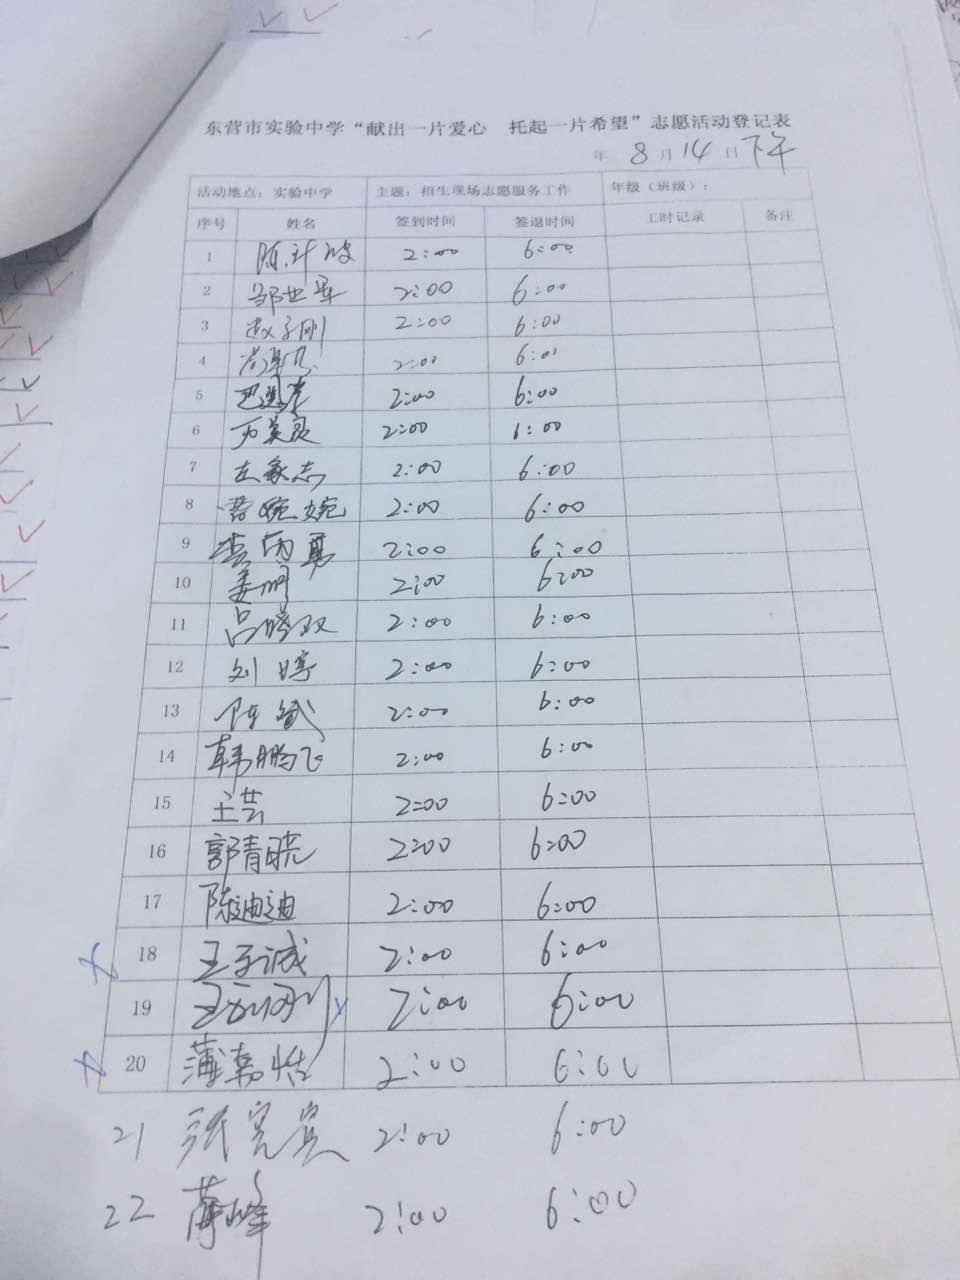 东营市实验中学“献出一片爱心 托起一片希望”志愿活动登记表
年 8 月 14 日 下午
活动地点：实验中学 主题：招生现场志愿服务工作 年级（班级）：
序号 姓名 签到时间 签退时间 工时记录 备注
1 陈 2:00 6:00
2 邹世军 2:00 6:00
3 赵子刚 2:00 6:00
4 2:00 6:00
5 巴 2:00 6:00
6 2:00 6:00
7 左家志 2:00 6:00
8 婉婉 2:00 6:00
9 李 勇 2:00 6:00
10 姜明 2:00 6:00
11 吕晓双 2:00 6:00
12 刘婷 2:00 6:00
13 陈斌 2:00 6:00
14 韩鹏飞 2:00 6:00
15 王芸 2:00 6:00
16 郭青晓 2:00 6:00
17 陈迪迪 2:00 6:00
18 王子诚 2:00 6:00
19 王 2:00 6:00
20 薄嘉恬 2:00 6:00
21 张宪宾 2:00 6:00
22 薄峰 2:00 6:00